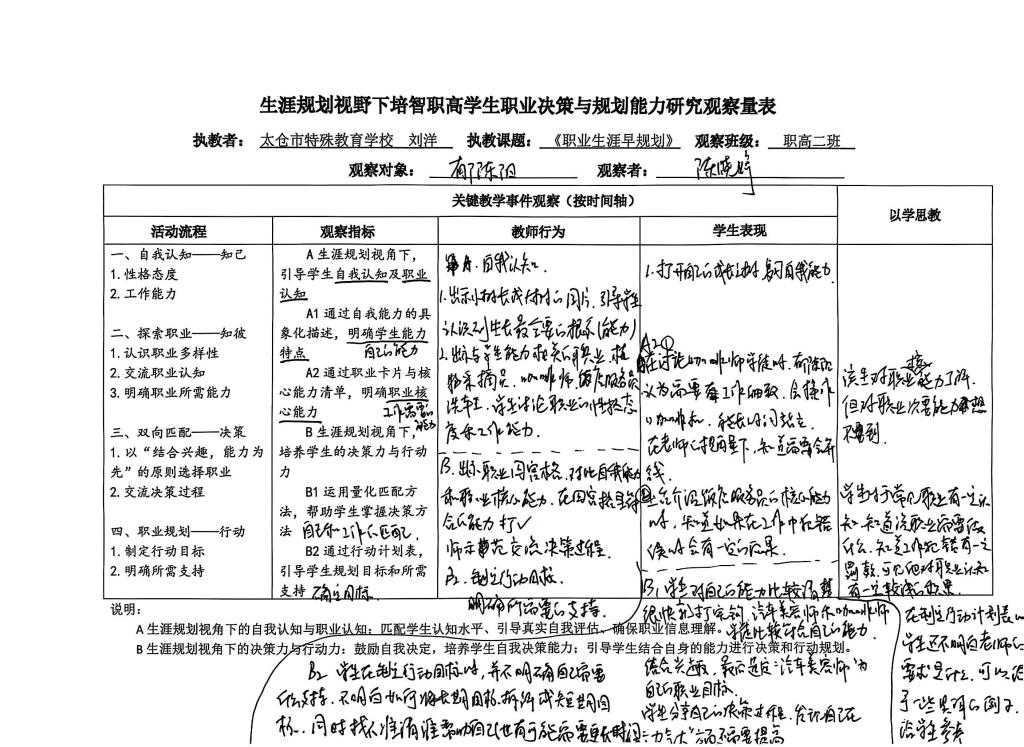 生涯规划视野下培智职高学生职业决策与规划能力研究观察量表
执教者： 太仓市特殊教育学校 刘洋 执教课题： 《职业生涯早规划》 观察班级： 职高二班
观察对象： 观察者：
关键教学事件观察（按时间轴）
以学思教
活动流程 观察指标 教师行为 学生表现
一、自我认知——知己
1.性格态度
2.工作能力
二、探索职业——知彼
1.认识职业多样性
2.交流职业认知
3.明确职业所需能力
三、双向匹配——决策
1.以“结合兴趣，能力为
先”的原则选择职业
2.交流决策过程
四、职业规划——行动
1.制定行动目标
2.明确所需支持
A 生涯规划视角下，
引导学生自我认知及职业
认知
A1 通过自我能力的具
象化描述，明确学生能力
特点 自己的能力
A2 通过职业卡片与核
心能力清单，明确职业核
心能力 工作需要的能力
B 生涯规划视角下，
培养学生的决策力与行动
力
B1 运用量化匹配方
法，帮助学生掌握决策方
法 自己和工作的匹配.
B2 通过行动计划表，
引导学生规划目标和所需
支持 确定目标.
A.自我认知.
1.出示小树长成大树的图片,引导学生
认识到生长最重要的根系(能力)
2.出示与学生能力相关的职业,植
物采摘员,咖啡师,餐店服务员
洗车工.学生讨论职业的性格态
度和工作能力.
B.出示职业四宫格,对比自我能力
和职业核心能力,在四宫格里符
合的能力打√
师示范交流决策过程.
B2.制定行动目标.
明确所需要的支持.
1.打开自己的成长树,复习自我能力
A2①
在讨论咖啡师职业时,
认为需要有工作细致,会操作
咖啡机,能长时间站立.
在老师的提问下,知道需要会
②在介绍餐店服务员的核心能力
时,知道如果在工作中犯错
误时会有一定的后果.
B1.学生对自己的能力比较清楚
很快就打完钩,汽车美容师和咖啡师
学生比较符合自己的能力.
结合兴趣,最后选定“汽车美容师”为
自己的职业目标.
学生分享自己的决策过程,告诉自己在
“力气大”方面还需要提高
该生对职业能力了解.
但对职业次要能力想
不到.
学生对于常见职业有一定认
知,知道该职业需要做
什么.知道工作犯错有一定
罚款,可见他对职业认知
有一定较深的效果.
说明：
A 生涯规划视角下的自我认知与职业认知：匹配学生认知水平、引导真实自我评估、确保职业信息理解。
B 生涯规划视角下的决策力与行动力：鼓励自我决定，培养学生自我决策能力；引导学生结合自身的能力进行决策和行动规划。
B2 学生在制定行动目标时,并不明确自己需要
什么支持,不明白如何将长期目标拆分成短期目
标.同时找不准请谁帮助自己也有可能需要更长时间
在制定行动计划表时
学生还不明白老师的
需求是什么,可以给
予一些具体的例子
给学生参考